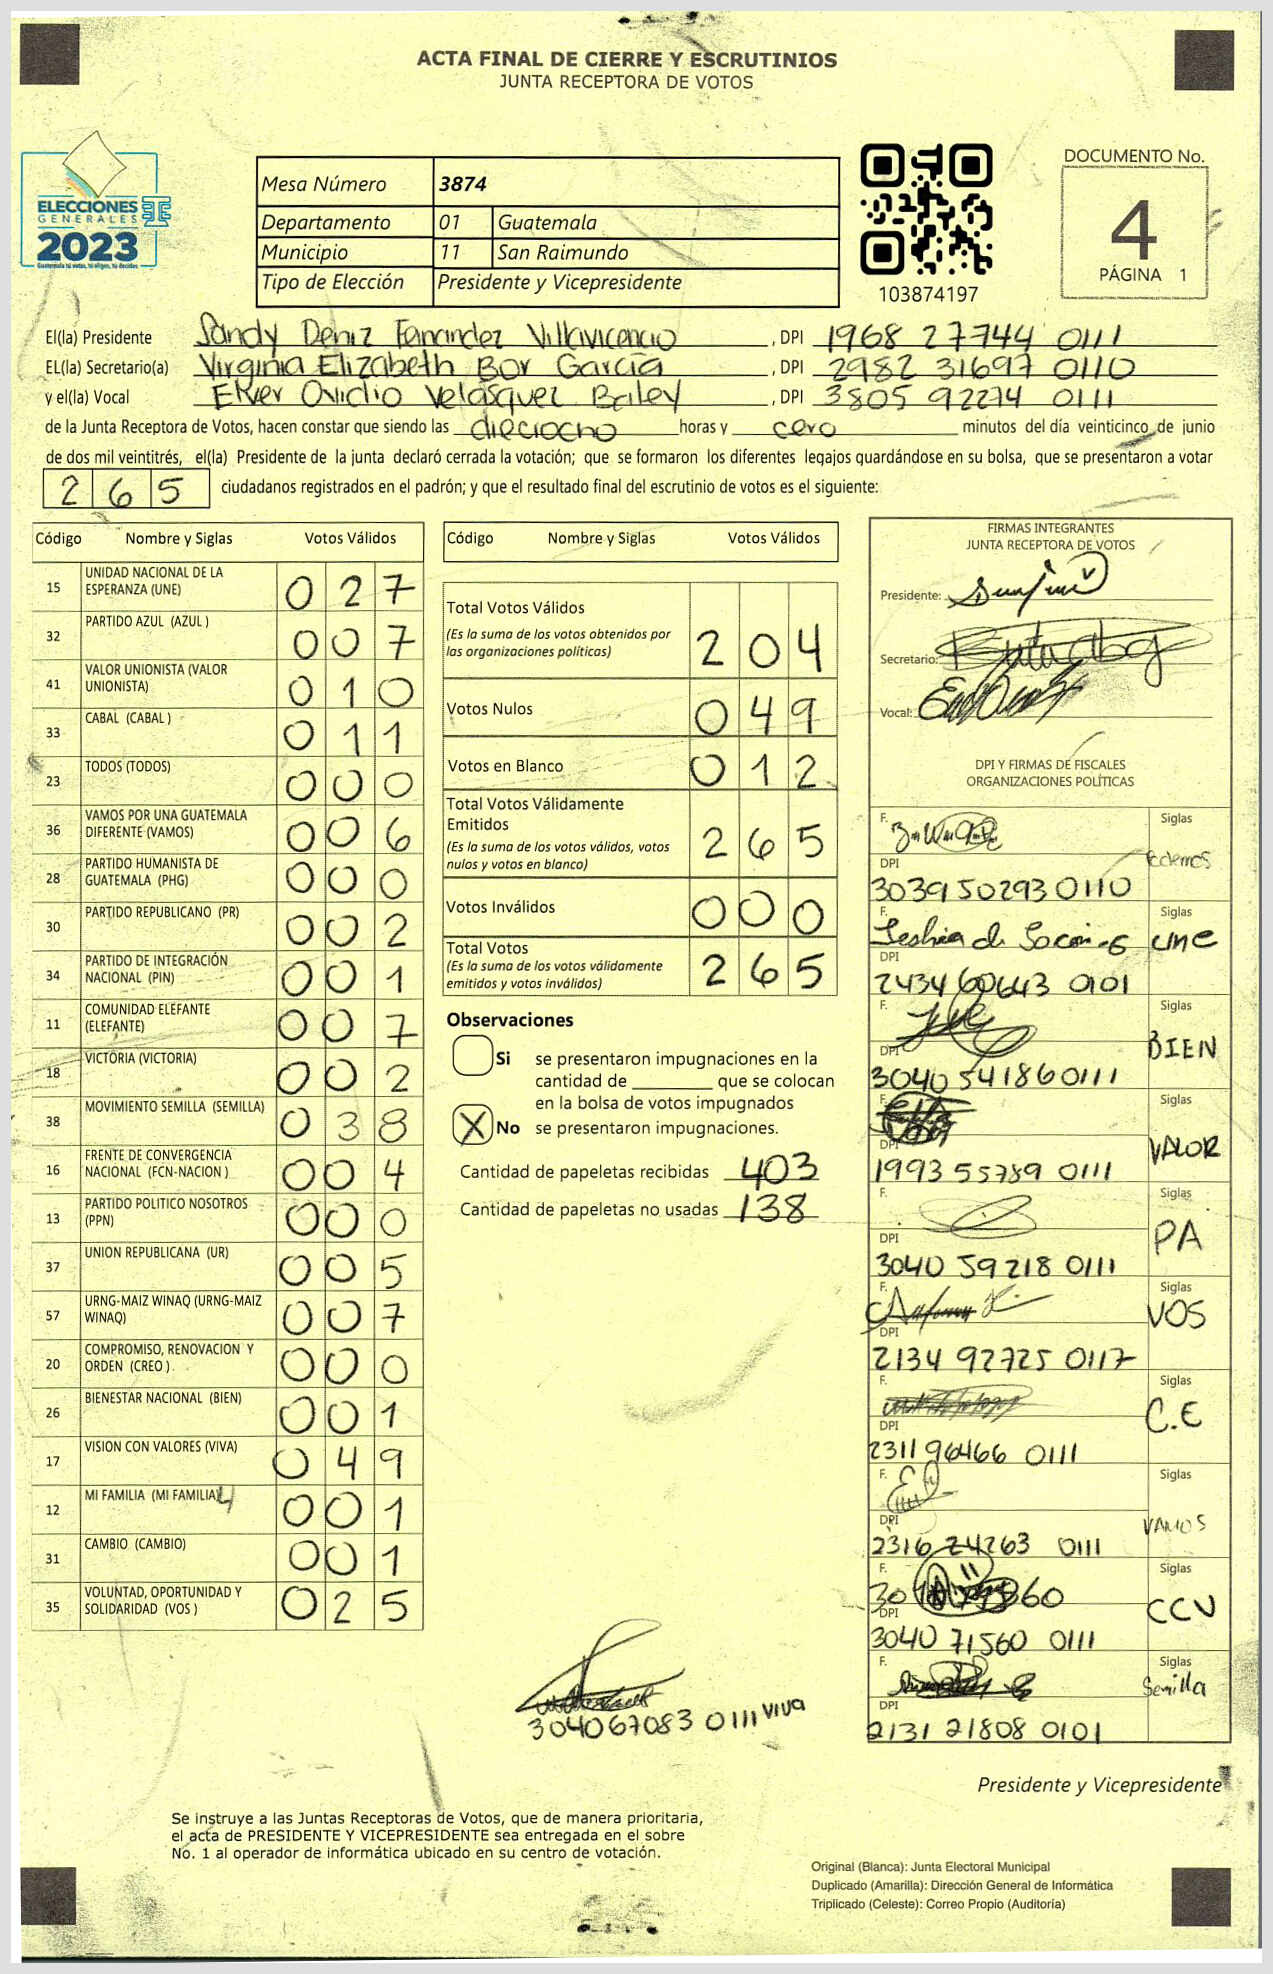 ACTA FINAL DE CIERRE Y ESCRUTINIOS
JUNTA RECEPTORA DE VOTOS
ELECCIONES
GENERALES
2023
Guatemala tú votas, tú eliges, tú decides
Mesa Número 3874
Departamento 01 Guatemala
Municipio 11 San Raimundo
Tipo de Elección Presidente y Vicepresidente
103874197
DOCUMENTO No.
4
PÁGINA 1
El(la) Presidente Sandy Deniz Fernández Villavicencio, DPI 1968 27744 0111
EL(la) Secretario(a) Virginia Elizabeth Bor García, DPI 2982 31697 0110
y el(la) Vocal Elver Ovidio Velásquez Bailey, DPI 3805 92274 0111
de la Junta Receptora de Votos, hacen constar que siendo las dieciocho horas y cero minutos del día veinticinco de junio
de dos mil veintitrés, el(la) Presidente de la junta declaró cerrada la votación; que se formaron los diferentes legajos guardándose en su bolsa, que se presentaron a votar
265 ciudadanos registrados en el padrón; y que el resultado final del escrutinio de votos es el siguiente:
Código Nombre y Siglas Votos Válidos
15 UNIDAD NACIONAL DE LA ESPERANZA (UNE) 027
32 PARTIDO AZUL (AZUL ) 007
41 VALOR UNIONISTA (VALOR UNIONISTA) 010
33 CABAL (CABAL ) 011
23 TODOS (TODOS) 000
36 VAMOS POR UNA GUATEMALA DIFERENTE (VAMOS) 006
28 PARTIDO HUMANISTA DE GUATEMALA (PHG) 000
30 PARTIDO REPUBLICANO (PR) 002
34 PARTIDO DE INTEGRACIÓN NACIONAL (PIN) 001
11 COMUNIDAD ELEFANTE (ELEFANTE) 007
18 VICTORIA (VICTORIA) 002
38 MOVIMIENTO SEMILLA (SEMILLA) 038
16 FRENTE DE CONVERGENCIA NACIONAL (FCN-NACION ) 004
13 PARTIDO POLITICO NOSOTROS (PPN) 000
37 UNION REPUBLICANA (UR) 005
57 URNG-MAIZ WINAQ (URNG-MAIZ WINAQ) 007
20 COMPROMISO, RENOVACION Y ORDEN (CREO ) 000
26 BIENESTAR NACIONAL (BIEN) 001
17 VISION CON VALORES (VIVA) 049
12 MI FAMILIA (MI FAMILIA) 001
31 CAMBIO (CAMBIO) 001
35 VOLUNTAD, OPORTUNIDAD Y SOLIDARIDAD (VOS ) 025
Código Nombre y Siglas Votos Válidos
Total Votos Válidos 204
(Es la suma de los votos obtenidos por
las organizaciones políticas)
Votos Nulos 049
Votos en Blanco 012
Total Votos Válidamente
Emitidos 265
(Es la suma de los votos válidos, votos
nulos y votos en blanco)
Votos Inválidos 000
Total Votos 265
(Es la suma de los votos válidamente
emitidos y votos inválidos)
Observaciones
Si se presentaron impugnaciones en la
cantidad de ________ que se colocan
en la bolsa de votos impugnados
X No se presentaron impugnaciones.
Cantidad de papeletas recibidas 403
Cantidad de papeletas no usadas 138
304067083 0111 VIVA
FIRMAS INTEGRANTES
JUNTA RECEPTORA DE VOTOS
Presidente:
Secretario:
Vocal:
DPI Y FIRMAS DE FISCALES
ORGANIZACIONES POLÍTICAS
F. Siglas
Podemos
DPI
3039 50293 0110
F. Siglas
une
DPI
2434 60643 0101
F. Siglas
BIEN
DPI
3040 54186 0111
F. Siglas
VALOR
DPI
1993 55789 0111
F. Siglas
PA
DPI
3040 59218 0111
F. Siglas
VOS
DPI
2134 92725 0117
F. Siglas
C.E
DPI
2311 96466 0111
F. Siglas
VAMOS
DPI
2316 24263 0111
Siglas
CCV
DPI
3040 71560 0111
F. Siglas
Semilla
DPI
2131 21808 0101
Presidente y Vicepresidente
Se instruye a las Juntas Receptoras de Votos, que de manera prioritaria,
el acta de PRESIDENTE Y VICEPRESIDENTE sea entregada en el sobre
No. 1 al operador de informática ubicado en su centro de votación.
Original (Blanca): Junta Electoral Municipal
Duplicado (Amarilla): Dirección General de Informática
Triplicado (Celeste): Correo Propio (Auditoría)